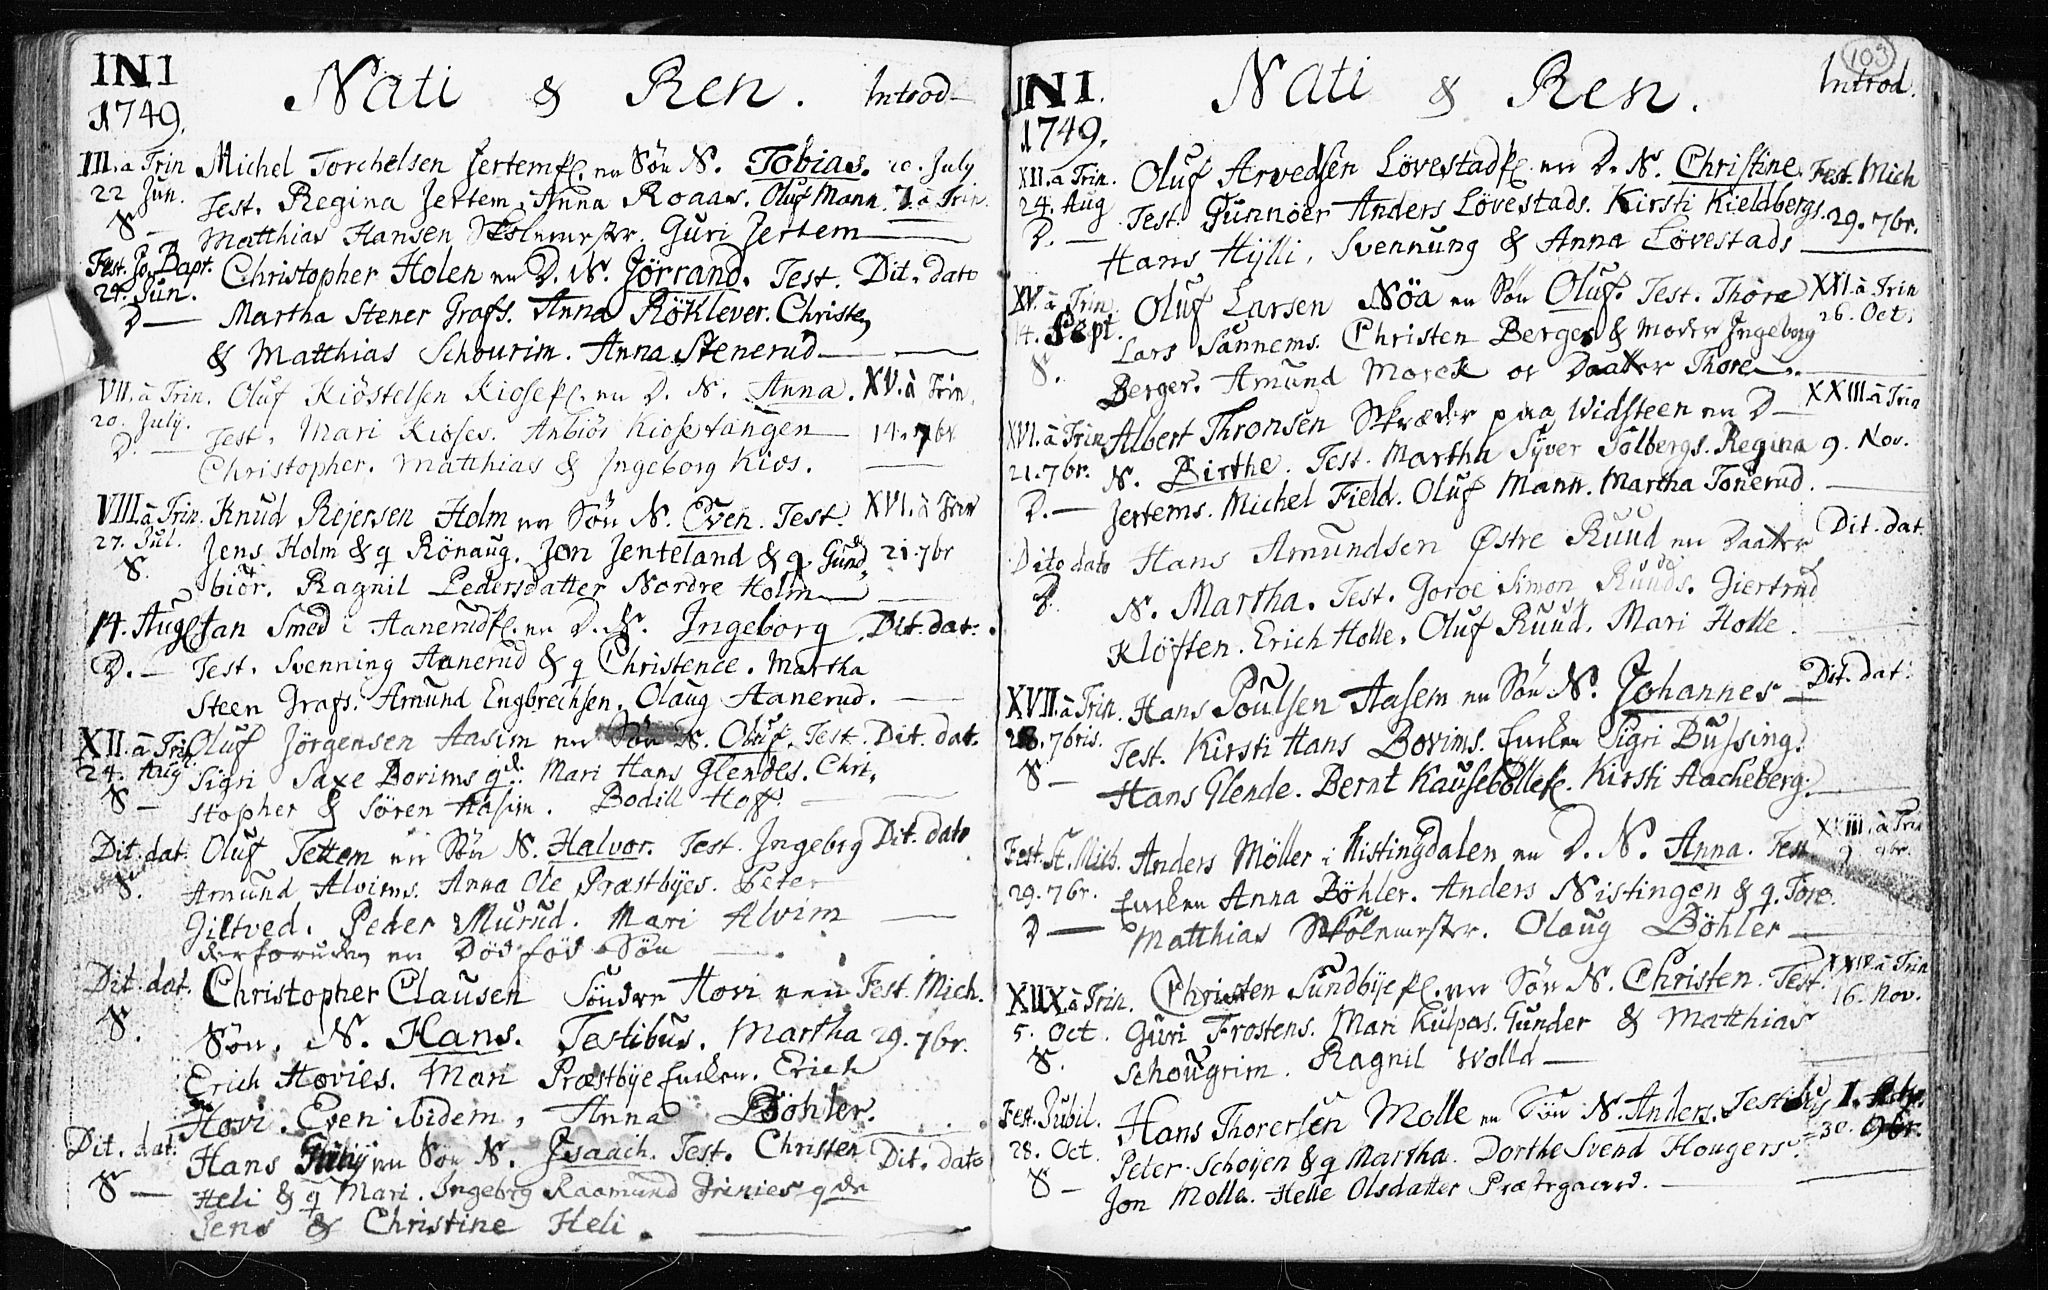 INI
Nati & Ren. Introd
1749.
III. a Trin Michel Torchelsen Jertem en Søn N. Tobias. 20. July
22 Jun. Test. Regina Jertem, Anna Roaas. Oluf Mann 7. à Trin.
S - Matthias Hansen Skolemester. Guri Jertem
Fest. Jo. Bapt. Christopher Holen en D. N. Jörrand. Test. Dit. dato
24. Jun.
D - Martha Stener Grafs. Anna Röklever. Christen
& Matthias Schourim. Anna Stenerud
VII. à Trin. Oluf Kiöstelsen Kiose en D. N. Anna. XV. à Trin.
20. July.
D. - Test. Mari Kioses. Anbiör Kiosetangen 14. 7br
Christopher. Matthias & Ingeborg Kios.
VIII. à Trin. Knud Rejersen Holm en Søn N. Even. Test. XVI. à Trin
27. Jul. Jens Holm & q Rönaug. Jon Jenteland & q Gund 21. 7br
S. biör. Ragnil Pedersdatter Nordre Holm
14. Aug Jan Smed i Aanerud en D. N. Ingeborg Dit. dat.
D. - Test. Svenning Aanerud & q Christence. Martha
Steen Grafs. Amund Engbrechsen. Olaug Aanerud.
XII. à Trin. Oluf Jörgensen Aasim en Søn N. Oluf. Test. Dit. dat.
24. Aug Sigri Saxe Borims Mari Hans Glendes. Chri
S - stopher & Sören Aasim. Bodill Hoff.
Dit. dat. Oluf Tettem en Søn N. Halvor. Test. Ingebrg Dit. dato
S. Amund Alvims. Anna Ole Præstbyes. Peter
Jiltved. Peder Murud. Mari Alvim
derforuden en Død fød Søn
Dit. dat. Christopher Clausen Söndre Hovi een Fest. Mich.
S. Søn. N. Hans. Testibus. Martha 29. 7br.
Erich Hovies. Mari Præstbye Encken. Erich
Hovi. Even ibidem, Anna Böhler.
Dit. dat. Hans en Søn N. Isaach. Test. Christen Dit. dato
S - Heli & q Mari. Ingebrg Raamund
Jens & Christine Heli.
103
INI.
Nati & Ren. Introd.
1749.
XII. a Trin. Oluf Arvedsen Lövestad en D. N. Christine. Fest. Mich
24. Aug Test. Gunnöer Anders Lövestads. Kirsti Kieldbergs. 29. 7br.
D. - Hans Hylli, Svennung & Anna Lövestads
XV. à Trin Oluf Larsen Nöa en Søn Oluf. Test. Thore XXI. à Trin
14. Sept. Lars Sannems. Christen Berger & Moder Ingeborg 26. Oct.
S. Berger. Amund Moreck oc Daatter Thore
XVI. à Trin Albert Thronsen Skræder paa Widsteen en D - XXIII. à Trin
21. 7br. N. Birthe. Test. Martha Syver Solbergs. Regina 9. Nov.
D. - Jertems. Michel Field. Oluf Mann. Martha Tonerud.
Dito dato Hans Amundsen Østre Ruud en Daatter Dit. dat.
D. N. Martha. Test. Goroe Simon Ruuds. Giertrud
Klöften. Erich Holle. Oluf Ruud. Mari Holle
XVII. à Trin. Hans Poulsen Aasem en Søn N. Johannes Dit. dat.
28. 7bris. Test. Kirsti Hans Borims. Encken Sigri Bussing.
S - Hans Glende. Bernt Kauseböllei. Kirsti Aacheberg.
Fest. St. Mich. Anders Möller i Nistingdalen en D. N. Anna. Test XXIII. à Trin
29. 7br. Encken Anna Böhler. Anders Nistingen & q. Tore. 9 9br.
D - Matthias Skolemester. Olaug Böhler
XIIX. à Trin. Christen Sundbye en Søn N. Christen. Test. XXIV. à Trin
5. Oct. Guri Frostens. Mari Kulpes. Gunder & Matthias 16. Nov.
S. Schougrim. Ragnil Wolla
Fest. Jubil. Hans Thorersen Molle en Søn N. Anders. Testibus I.
28. Oct. Peter Schoyen & q Martha. Dorthe Svend Hougers. 30. 9br.
S - Jon Molle. Helle Olsdatter Præstegaard.